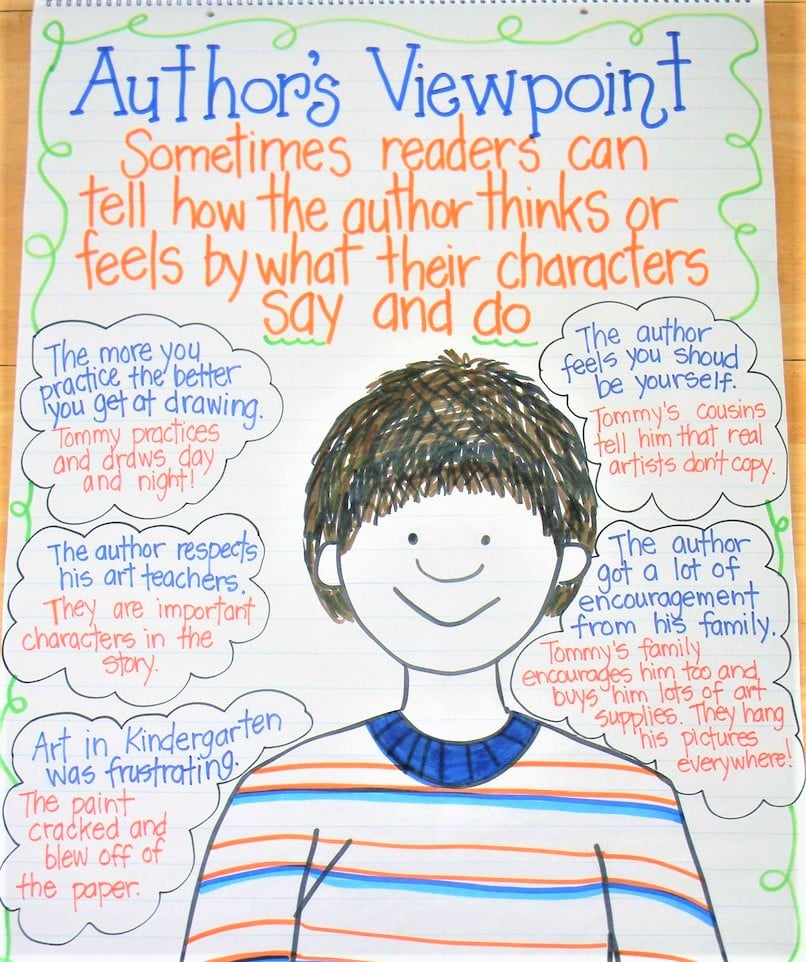 Author's Viewpoint
Sometimes readers can
tell how the author thinks or
feels by what their characters
say and do
The more you
practice the better
you get at drawing.
Tommy practices
and draws day
and night!
The author respects
his art teachers.
They are important
characters in the
story.
Art in Kindergarten
was frustrating.
The paint
cracked and
blew off of
the paper.
The author
feels you shoud
be yourself.
Tommy's cousins
tell him that real
artists don't copy.
The author
got a lot of
encouragement
from his family.
Tommy's family
encourages him too and
buys him lots of art
supplies. They hang
his pictures
everywhere!